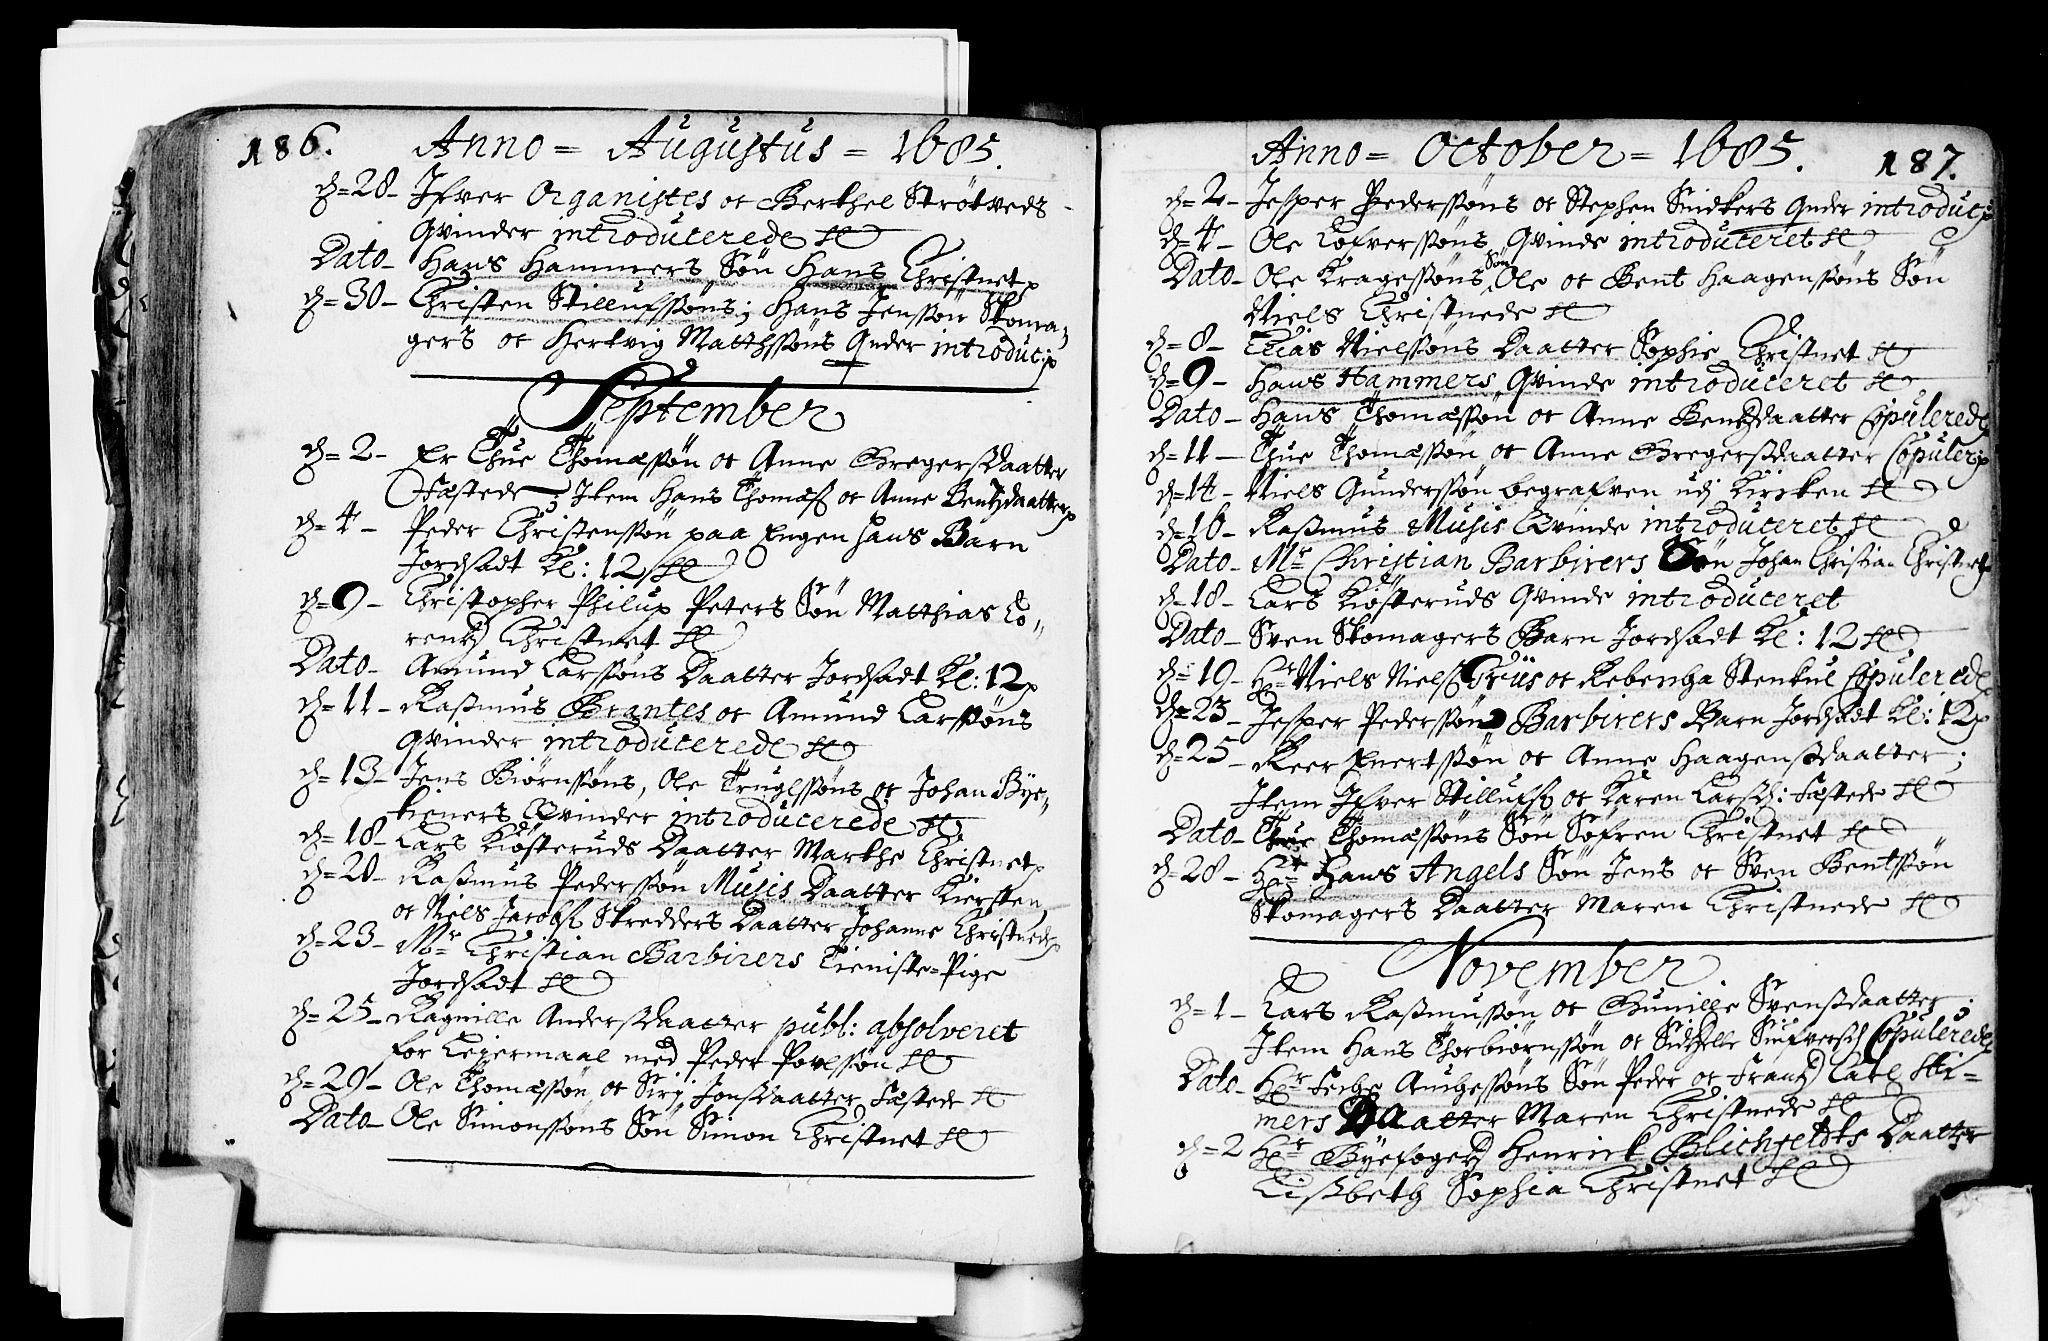 186. Anno = Augustus = 1685.
d = 28 - Ifver Organistes oc Berthel Strötveds
Qvinder introducerede
Dato - Hans Hammers Sön Hans Christnet
d = 30 - Christen Stillufssöns; Hans Jenssön Skoma-
gers oc Hertvig Matthssöns Qnder introduc:
September
d = 2 - Er Thue Thomæssön oc Anne Gregerssdaatter
Fæstede; Item Hans Thomæss oc Anne Bentzdaatter
d = 4 - Peder Christenssön paa Engen hans Barn
Jordsadt Kl: 12
d = 9 - Christopher Philup Peters Sön Matthias Lo-
rentz Christnet
Dato - Amund Larssöns Daatter Jordsadt Kl: 12
d = 11 - Rassmus Brantes oc Amund Larssöns
Qvinder introducerede
d = 13 - Jens Biörnssöns, Ole Truglssöns oc Johan Bye-
tieners Qvinder introducerede
d = 18 - Lars Kiösteruds Daatter Marthe Christnet
d = 20 - Rassmus Pederssön Musis Daatter Kiersten
oc Niels Jacobss Skredders Daatter Johanne Christnede
d = 23 - Mr Christian Barbirers Tieniste-Pige
Jordsadt
d = 25 - Ragnille Anderssdaatter publ: absolveret
for Leiermaal med Peder Povlssön
d = 29 - Ole Thomæssön oc Sirj Jonssdaatter Fæstede
Dato - Ole Simonssöns Sön Simon Christnet
Anno = October = 1685. 187.
d = 2 - Jesper Pederssöns oc Stephen Snidkers Qnder introduc:
d = 4 - Ole Lofverssöns Qvinde introduceret
Dato - Ole Kragessöns Sön Ole oc Bent Haagenssöns Sön
Niels Christnede
d = 8 - Elias Nielssöns Daatter Sophie Christnet
d = 9 - Hans Hammers Qvinde introduceret
Dato - Hans Thomæssön oc Anne Bentzdaatter Copulerede
d = 11 - Thue Thomæssön oc Anne Gregerssdaatter Copuler:
d = 14 - Niels Gunderssön begrafven udj Kircken
d = 16 - Rassmus Musis Qvinde introduceret
Dato - Mr Christian Barbirers Sön Johan Christian Christnet
d = 18 - Lars Kiösteruds Qvinde introduceret
Dato - Sven Skomagers Barn Jordsadt Kl: 12
d = 19 - Hr Niels Nielss Friis oc Rebencha Stenkul Copulerede
d = 23 - Jesper Pederssön Barbirers Barn Jordsadt Kl: 12
d = 25 - Reer Evertssön oc Anne Haagenssdaatter;
Item Ifver Stillufss oc Karen Larsd: Fæstede
Dato - Thue Thomæssöns Sön Söfren Christnet
d = 28 - Hr Hans Angels Sön Jens oc Sven Bentssön
Skomagers Daatter Maren Christnede
November
d = 1 - Lars Rassmussön oc Gunille Svenssdaatter;
Item Hans Thorbiörnssön oc Copulerede
Dato - Hr Sön Peder oc Frantz Carl
mers Daatter Maren Christnede
d = 2 Hr Byefoged Henrick Blichfeldts Daatter
Lissbeth Sophia Christnet